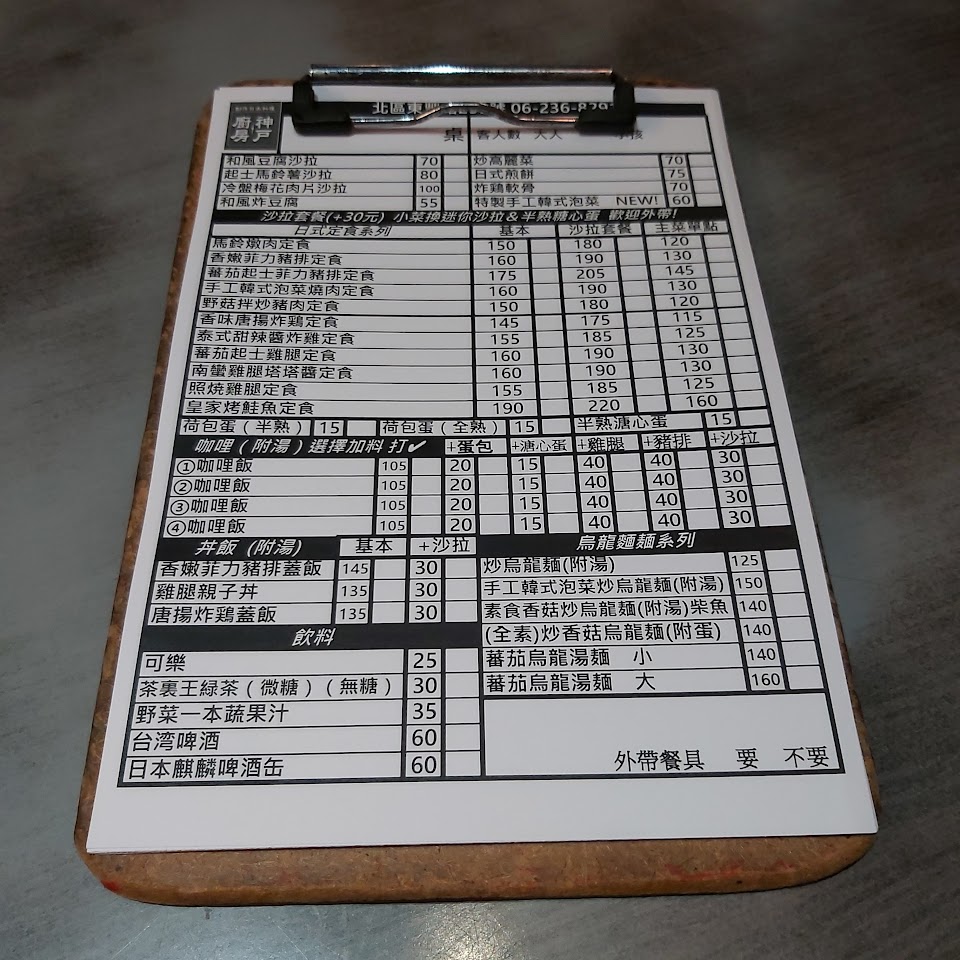 神戶廚房
北區東 號 06-236-829
桌 客人數 大人 小孩
和風豆腐沙拉 70 炒高麗菜 70
起士馬鈴薯沙拉 80 日式煎餅 75
冷盤梅花肉片沙拉 100 炸鷄軟骨 70
和風炸豆腐 55 特製手工韓式泡菜 NEW! 60
沙拉套餐(+30元) 小菜換迷你沙拉&半熟糖心蛋 歡迎外帶!
日式定食系列 基本 沙拉套餐 主菜單點
馬鈴燉肉定食 150 180 120
香嫩菲力豬排定食 160 190 130
蕃茄起士菲力豬排定食 175 205 145
手工韓式泡菜燒肉定食 160 190 130
野菇拌炒豬肉定食 150 180 120
香味唐揚炸鷄定食 145 175 115
泰式甜辣醬炸雞定食 155 185 125
蕃茄起士雞腿定食 160 190 130
南蠻雞腿塔塔醬定食 160 190 130
照燒雞腿定食 155 185 125
皇家烤鮭魚定食 190 220 160
荷包蛋(半熟) 15 荷包蛋(全熟) 15 半熟溏心蛋 15
咖哩(附湯)選擇加料 打✔ +蛋包 +溏心蛋 +雞腿 +豬排 +沙拉
①咖哩飯 105 20 15 40 40 30
②咖哩飯 105 20 15 40 40 30
③咖哩飯 105 20 15 40 40 30
④咖哩飯 105 20 15 40 40 30
丼飯 (附湯) 基本 +沙拉
香嫩菲力豬排蓋飯 145 30
雞腿親子丼 135 30
唐揚炸鷄蓋飯 135 30
飲料
可樂 25
茶裏王綠茶(微糖)(無糖) 30
野菜一本蔬果汁 35
台湾啤酒 60
日本麒麟啤酒缶 60
烏龍麵麵系列
炒烏龍麵(附湯) 125
手工韓式泡菜炒烏龍麵(附湯) 150
素食香菇炒烏龍麵(附湯)柴魚 140
(全素)炒香菇烏龍麵(附蛋) 140
蕃茄烏龍湯麵 小 140
蕃茄烏龍湯麵 大 160
外帶餐具 要 不要